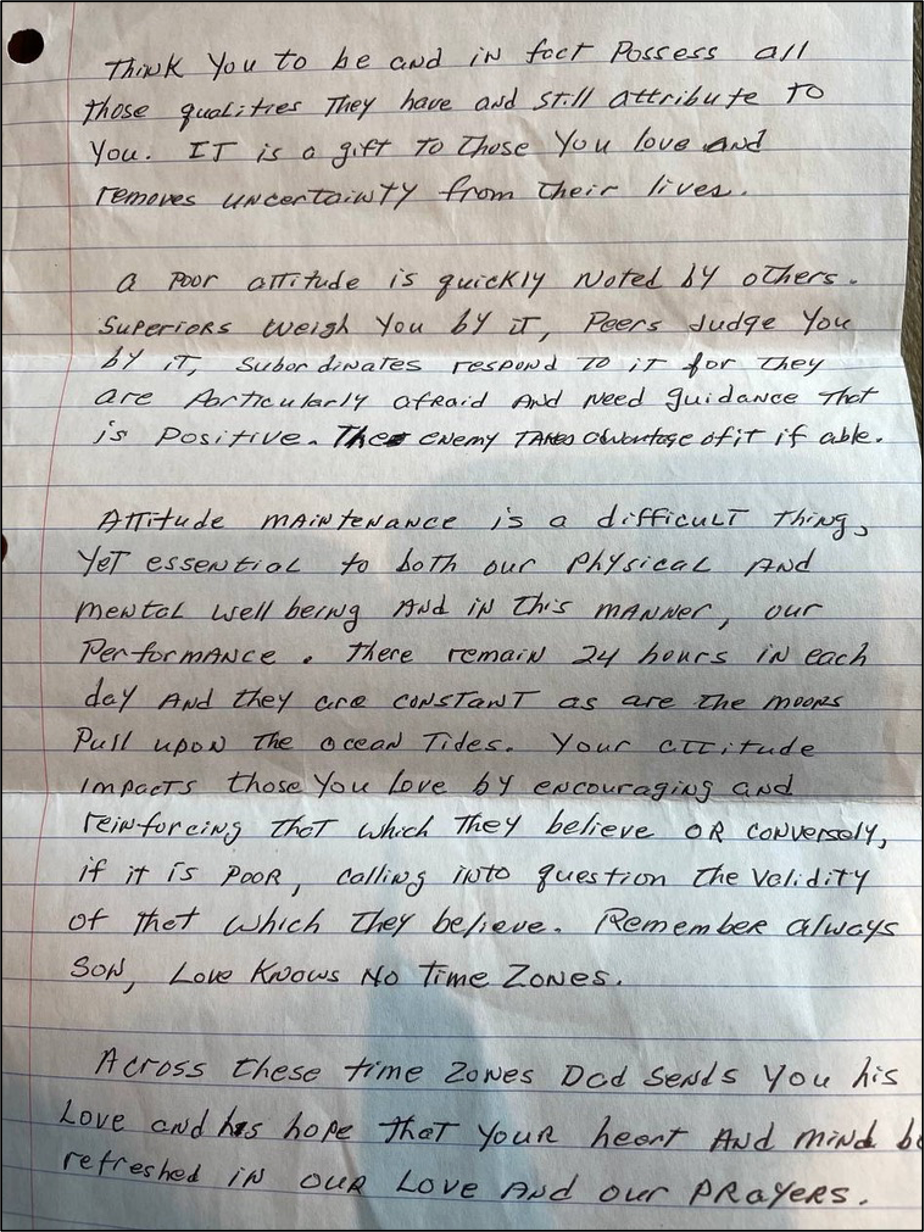 Think You to be and in fact Possess all
those qualities They have and still attribute to
You. IT is a gift To Those You love and
removes uncertainty from their lives.
a Poor attitude is quickly Noted by others.
Superiors weigh You by it, Peers Judge You
by iT, Subordinates respond To iT for They
are Particularly afraid And Need guidance That
is Positive. The enemy Takes advantage of it if able.
Attitude maintenance is a difficult Thing,
YeT essential to both our Physical And
mental well being And in This manner, our
Performance. There remain 24 hours in each
day And they are constant as are The moons
Pull upon The ocean Tides. Your attitude
impacts those You love by encouraging and
reinforcing That which They believe OR conversely,
if it is Poor, calling into question The Validity
of that which They believe. Remember always
Son, Love Knows No Time Zones.
Across these time Zones Dad Sends You his
Love and his hope that Your heart And mind be
refreshed in our Love And our PRAYERS.